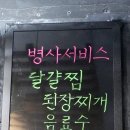 병사서비스
달걀찜
된장찌개
음료수